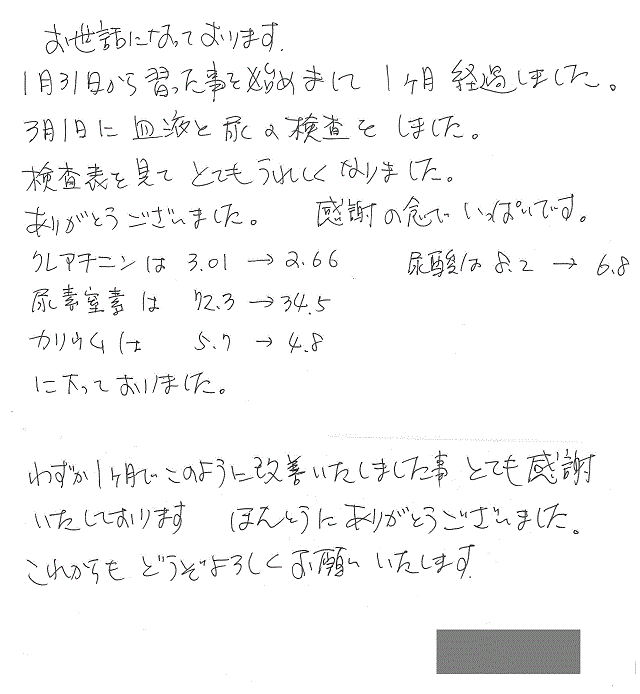 お世話になっております.
1月31日から習った事を始めまして 1ヶ月 経過しました。
3月1日に 血液と 尿の検査を しました。
検査表を見て とてもうれしくなりました。
ありがとうございました。 感謝の念で いっぱいです。
クレアチニンは 3.01 → 2.66 尿酸は 8.2 → 6.8
尿素窒素は 72.3 → 34.5
カリウムは 5.7 → 4.8
に下っておりました。
わずか1ヶ月でこのように改善いたしました事 とても感謝
いたしております ほんとうにありがとうございました。
これからも どうぞよろしくお願い いたします.